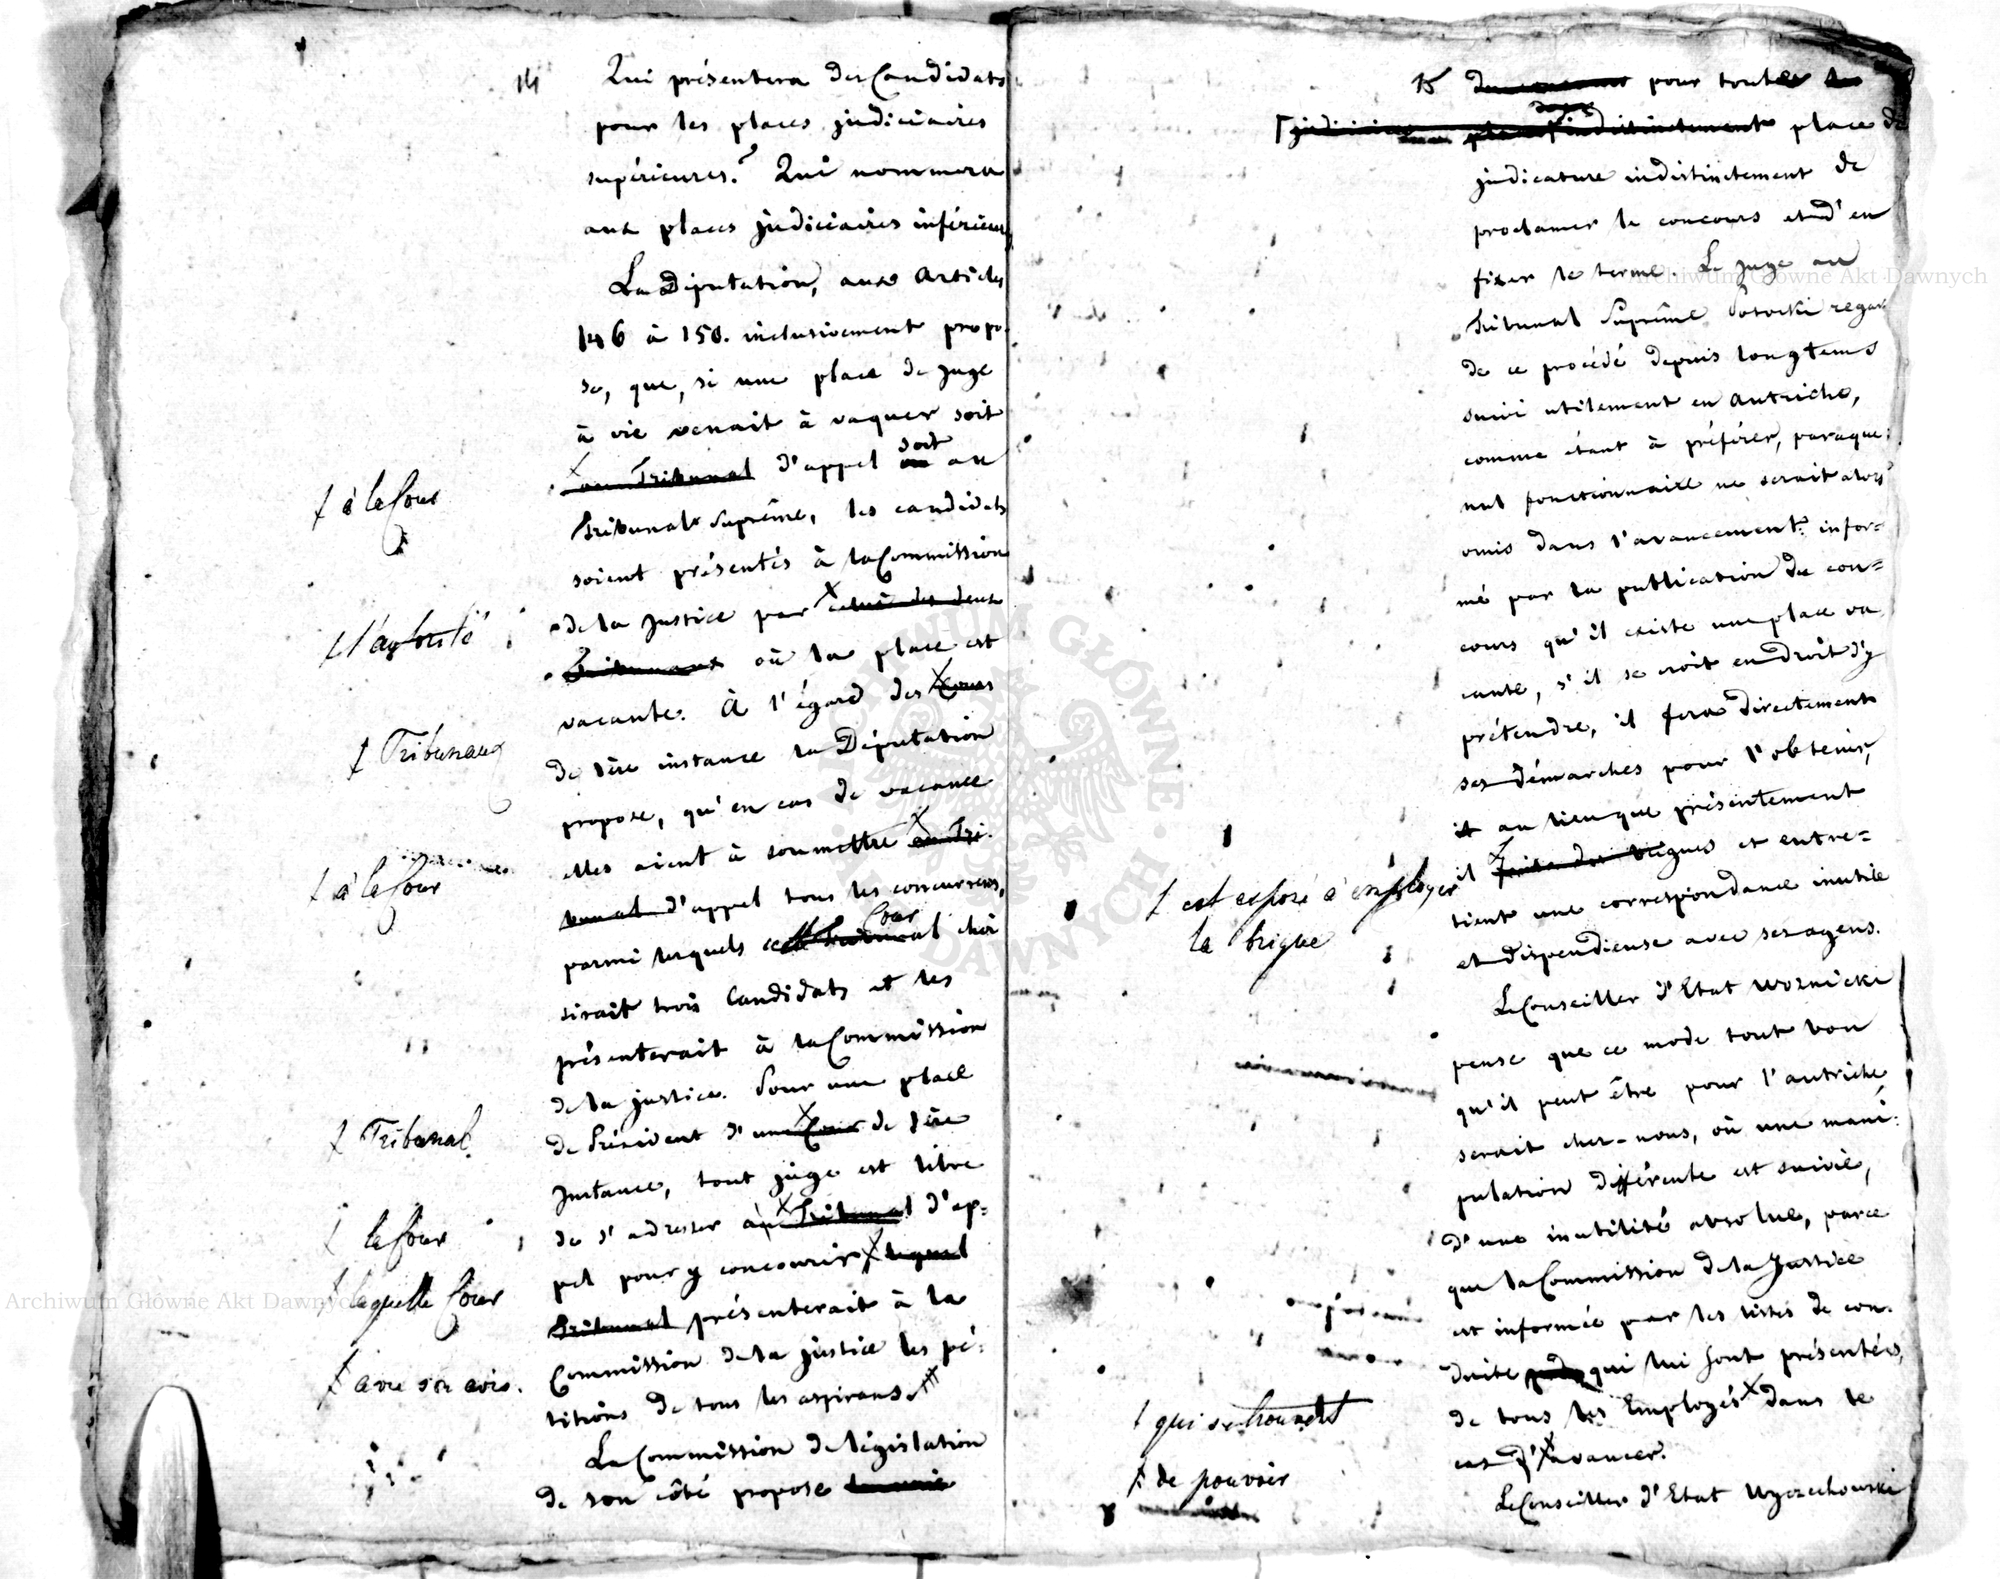 14
Qui présentera des Candidats
pour les places judiciaires
supérieures? Qui nommera
aux places judiciaires inférieures
La Députation, aux articles
146 à 150. inclusivement propo-
se, que, si une place de juge
à vie venait à vaquer soit
au Tribunal d'appel soit au
† à la Cour
Tribunal Suprême, les candidats
soient présentés à la Commission
de la Justice par celui des deux
† l'autorité
Tribunaux où la place est
vacante. A l'égard des Cours
† Tribunaux
de 1ère instance la Députation
propose, qu'en cas de vacance
elles aient à soumettre au Tri-
† à la Cour
bunal d'appel tous les concurrens,
parmi lesquels ce Tribunal choi
Cour
sirait trois Candidats et les
présenterait à la Commission
de la justice. Pour une place
de Président d'une Cour de 1ère
† Tribunal
Instance, tout juge est libre
de s'adresser au Tribunal d'ap=
† la Cour
pel pour y concourir lequel
† laquelle Cour
Tribunal présenterait à la
Commission de la justice les pé-
† avec son avis.
titions de tous les aspirans
La Commission de législation
de son côté propose
15
pour toutes
indistinctement place de
judicature indistinctement de
proclamer le concours et d'en
fixer le terme. Le juge au
Tribunal Suprême Potocki regar
de ce procédé depuis longtems
suivi utilement en Autriche,
comme étant à préférer, parceque
nul fonctionnaire ne serait alors
omis dans l'avancement: infor=
mé par la publication du con=
cours qu'il existe une place va
cante, s'il se croit en droit d'y
prétendre, il fera directement
ses démarches pour l'obtenir,
au lieu que présentement
il des brigues et entre=
† est exposé à employer
la brigue
tient une correspondance inutile
et dispendieuse avec ses agens.
Le Conseiller d'Etat Woznicki
pense que ce mode tout bon
qu'il peut être pour l'autriche
serait chez-nous, où une mani-
pulation différente est suivie,
d'une inutilité absolue, parce
que la Commission de la Justice
est informée par les listes de con-
duite qui lui sont présentées,
de tous les Employés dans le
† qui se trouvent
cas d'avancer.
† de pouvoir
Le Conseiller d'Etat Wyczechowski
Archiwum Główne Akt Dawnych
Archiwum Główne Akt Dawnych
ARCHIWUM GŁÓWNE AKT DAWNYCH